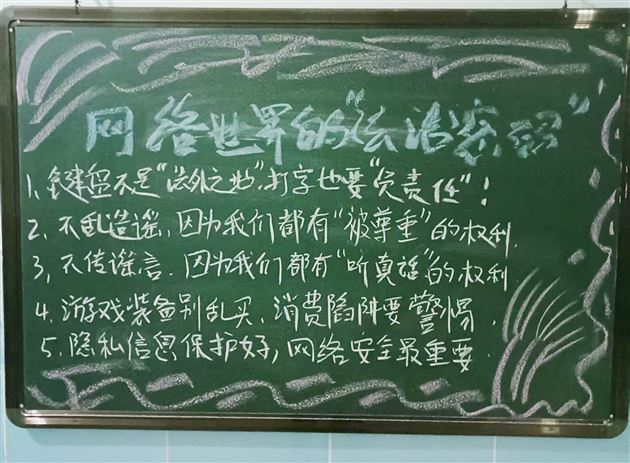 网络世界的“法治密码”
1、键盘不是“法外之地”,打字也要“负责任”!
2、不乱造谣,因为我们都有“被尊重”的权利.
3、不传谣言.因为我们都有“听真话”的权利
4、游戏装备别乱买、消费陷阱要警惕.
5、隐私信息保护好,网络安全最重要.